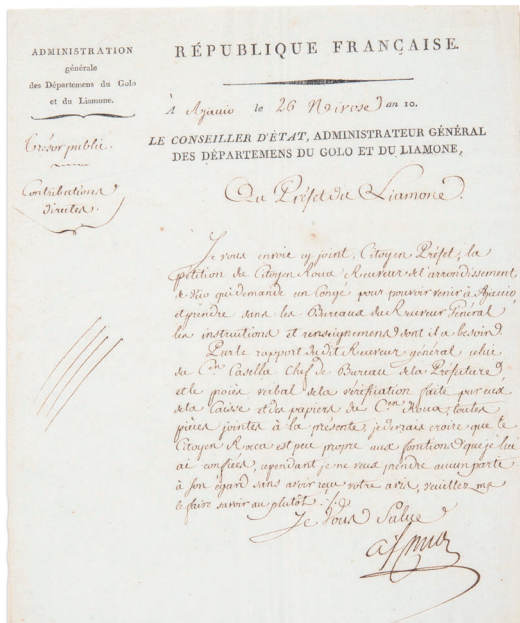 ADMINISTRATION
générale
des Départemens du Golo
et du Liamone.
Trésor public.
Contributions
directes.
RÉPUBLIQUE FRANÇAISE.
À Ajaccio le 26 Nivose an 10.
LE CONSEILLER D'ÉTAT, ADMINISTRATEUR GÉNÉRAL
DES DÉPARTEMENS DU GOLO ET DU LIAMONE,
Au Préfet du Liamone.
Je vous envoie cy joint, Citoyen Préfet, la
pétition du Citoyen Receveur de l'arrondissement
de Vico qui demande un Congé pour pouvoir venir à Ajaccio
et prendre dans les Bureaux du Receveur Général
les instructions et renseignemens dont il a besoin
Par le rapport dudit Receveur général celui
du Cen Casella Chef de Bureau de la Préfecture
et le procès verbal de la vérification faite par eux
de la Caisse et des papiers du Cen toutes
pièces jointes à la présente, je devrais croire que le
Citoyen Rocca est peu propre aux fonctions que je lui
ai confiées, cependant je ne veux prendre aucun parti
à son égard sans avoir reçu votre avis, veuillez me
le faire savoir au plutôt.
Je vous Salue